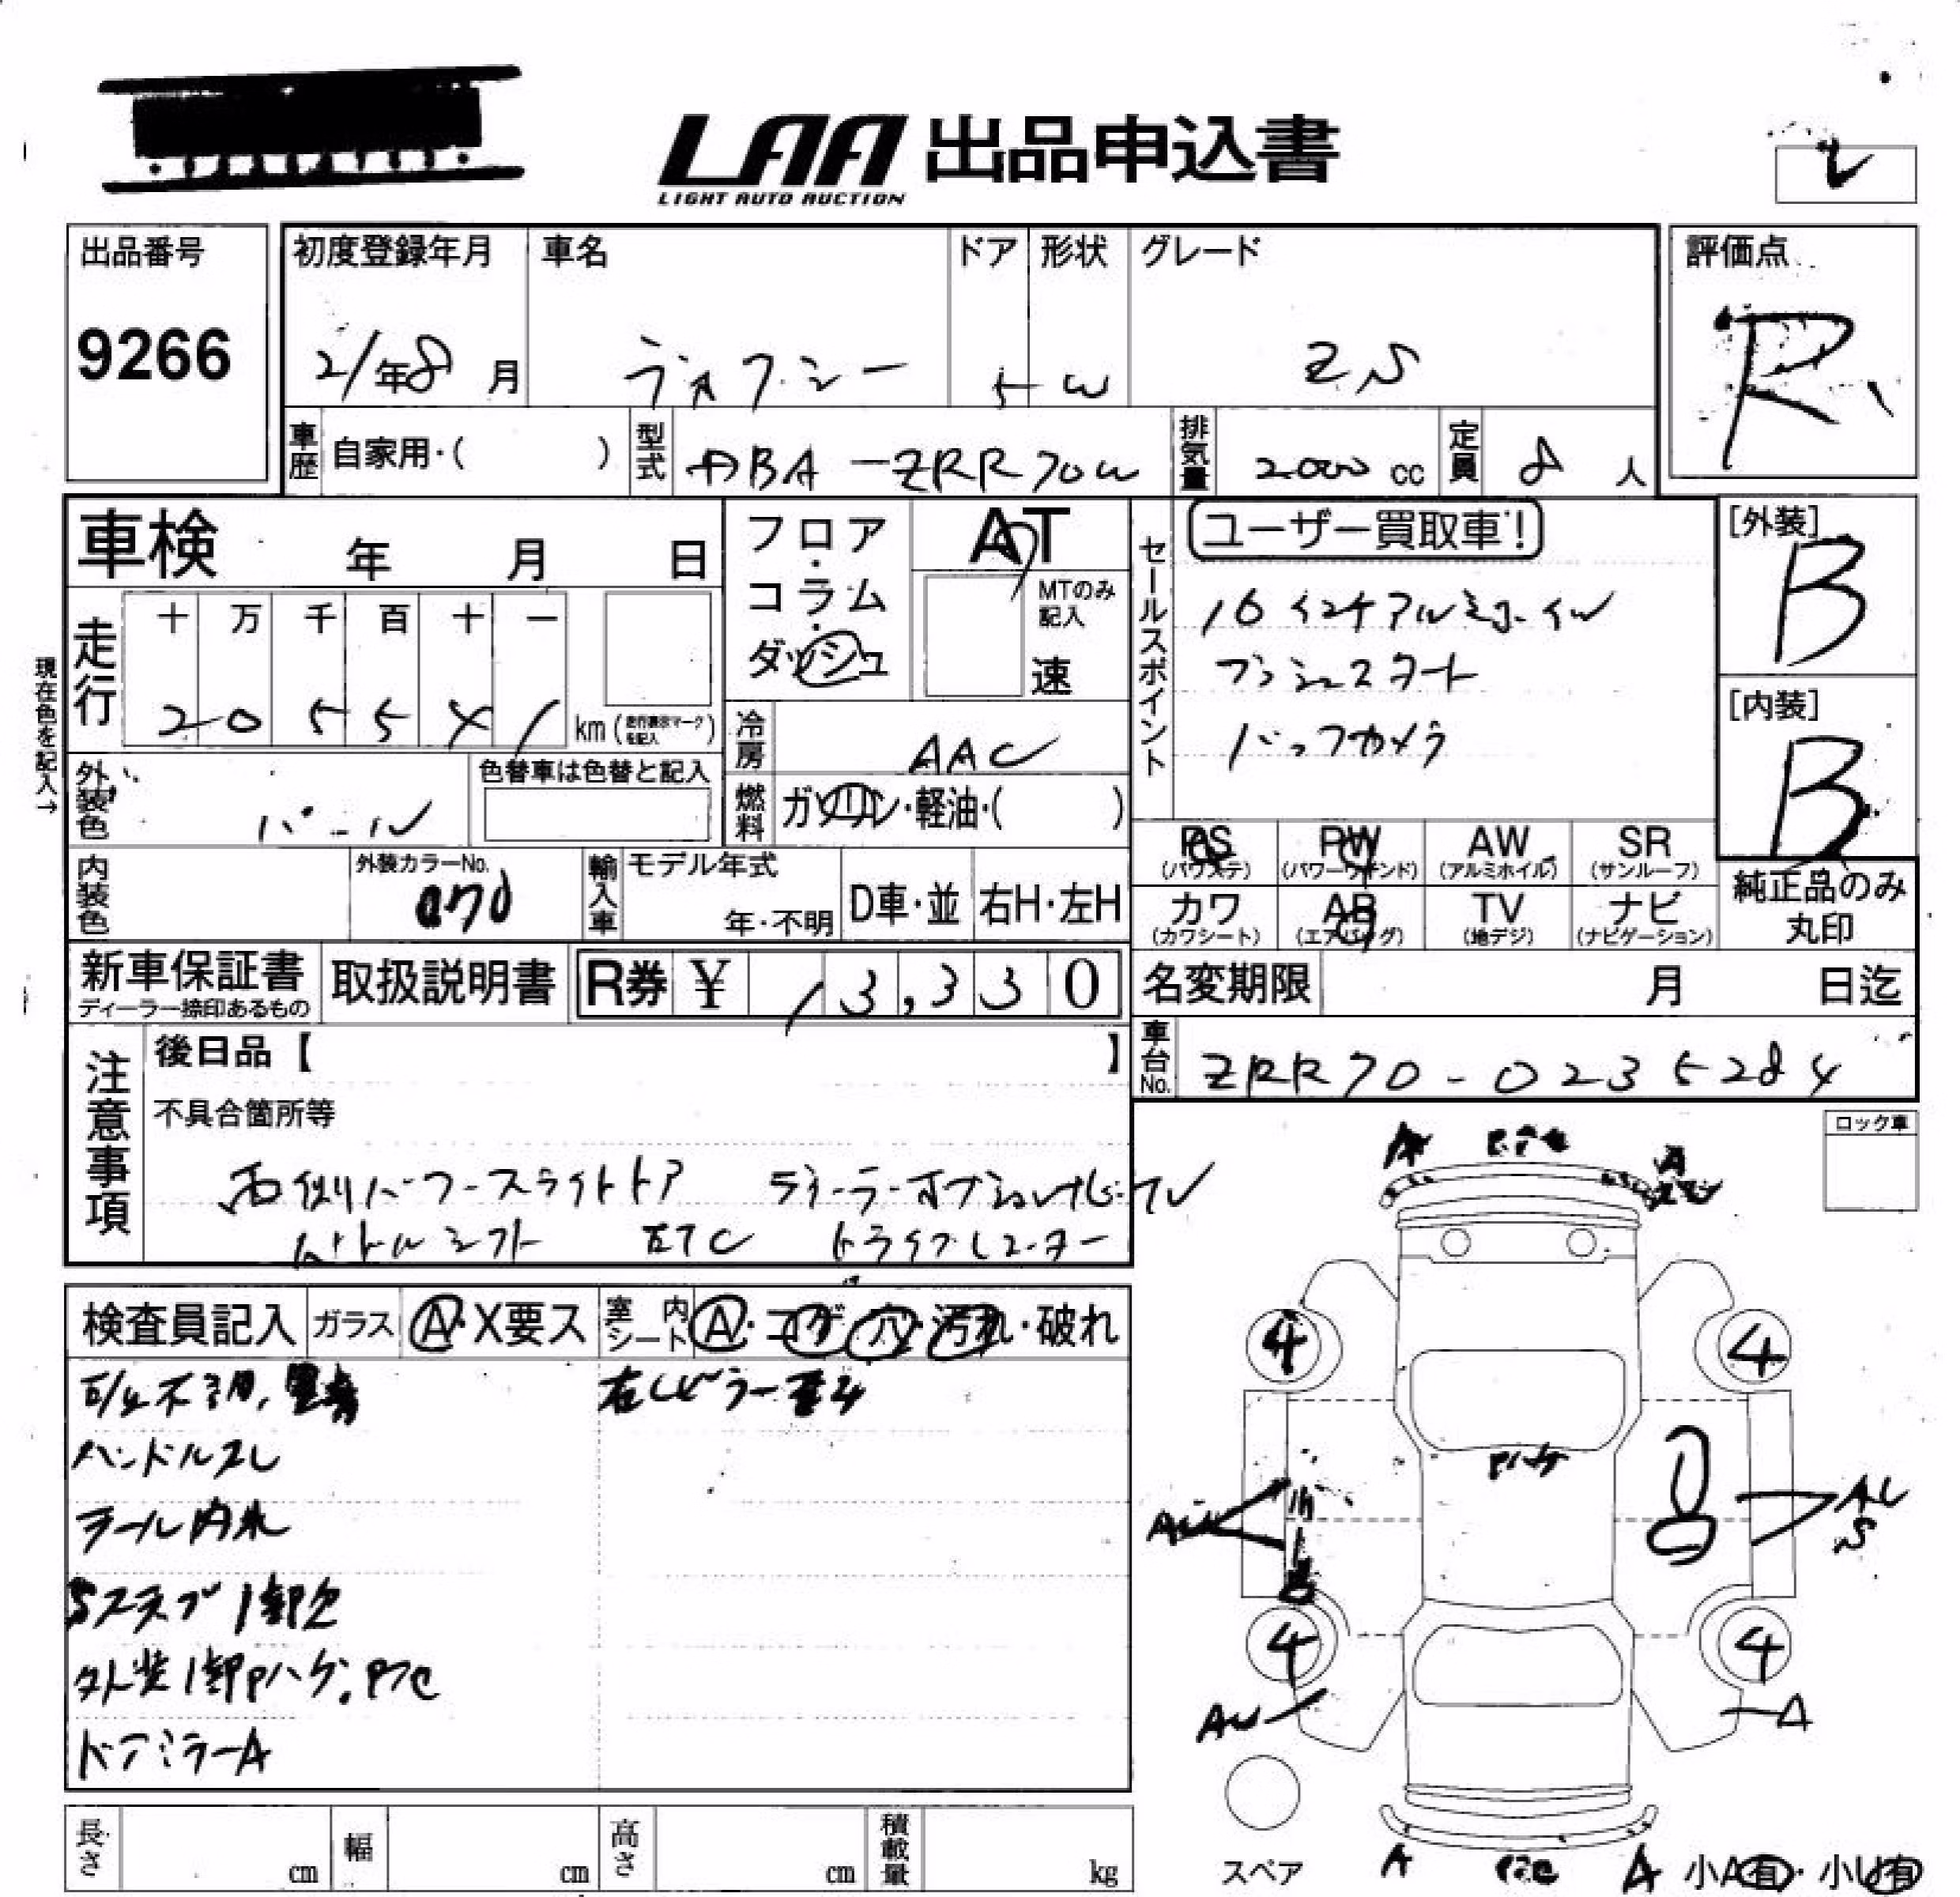 LAA 出品申込書
LIGHT AUTO AUCTION
出品番号
9266
初度登録年月
21年8月
車名
ヴォクシー
ドア
5
形状
W
グレード
ZS
評価点
R
車歴 自家用・( )
型式 DBA-ZRR70W
排気量 2000 cc
定員 8 人
車検 年 月 日
現在色を記入→
走行 十 万 千 百 十 一
2 0 5 5 4 1 km (走行表示マークを記入)
フロア・コラム・ダッシュ
AT
MTのみ記入
速
冷房 AAC
燃料 ガソリン・軽油・( )
外装色 パール
色替車は色替と記入
内装色
外装カラーNo.
070
輸入車 モデル年式
年・不明
D車・並 右H・左H
セールスポイント
ユーザー買取車!
16インチアルミホイル
プッシュスタート
バックカメラ
[外装]
B
[内装]
B
PS (パワステ) PW (パワーウィンド) AW (アルミホイル) SR (サンルーフ)
カワ (カワシート) AB (エアバッグ) TV (地デジ) ナビ (ナビゲーション)
純正品のみ丸印
新車保証書
ディーラー捺印あるもの
取扱説明書
R券 ¥ 13,330
名変期限 月 日迄
車台No. ZRR70-0235284
注意事項
後日品【 】
不具合箇所等
両側パワースライドドア ディーラーオプションナビ・TV
パドルシフト ETC ドライブレコーダー
ロック車
検査員記入 ガラス A・X要ス 室内シート A・コゲ・穴・汚れ・破れ
ハンドルスレ
右Cピラー歪み
モール肉れ
Sステップ1部欠
外装1部Pハゲ.P7C
ドアミラーA
A
A
Pハゲ
4 4
AU
4 4
AU
A
A
A
スペア
小A有・小U有
長さ cm 幅 cm 高さ cm 積載量 kg